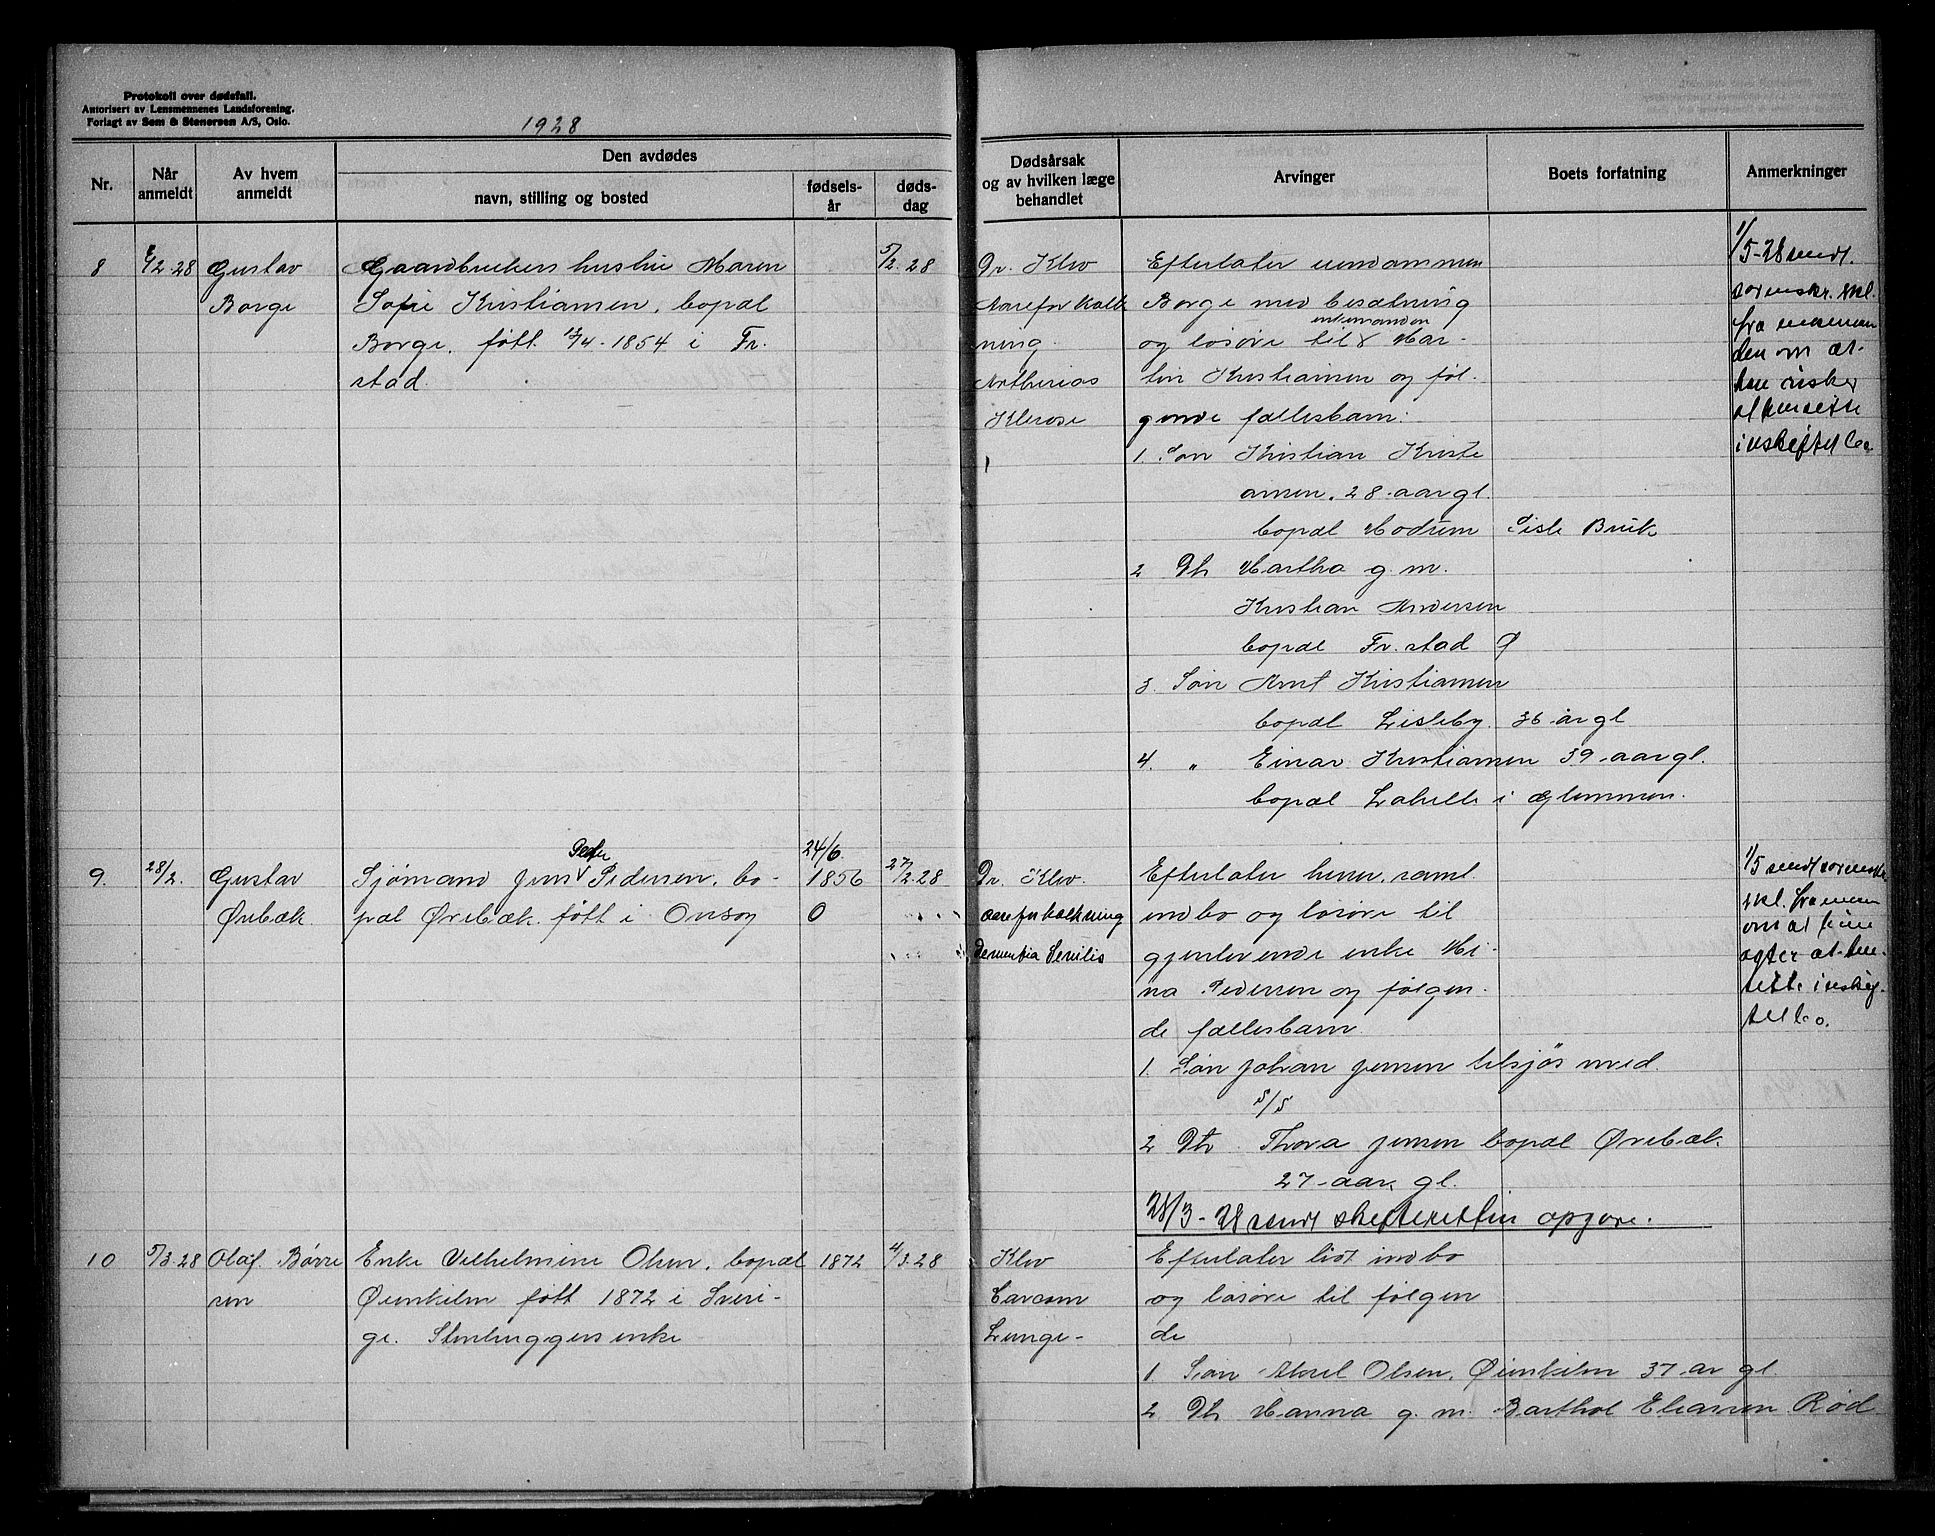 Protokoll over dødsfall.
Autorisert av Lensmennenes Landsforening.
Forlagt av Sem & Stenersen A/S, Oslo.
1928
Nr.
Når anmeldt
Av hvem anmeldt
Den avdødes
navn, stilling og bosted
fødsels-år
døds-dag
Dødsårsak og av hvilken læge behandlet
Arvinger
Boets forfatning
Anmerkninger
8
6/2 28
Gustav
Borge
Gaardbrukers hustru Maren
Sofie Kristiansen, bopæl
Borge, født 13/4 1854 i Fr.
stad.
5/2. 28
Dr. Klev
Aareforkalk
ning.
Klerose
Efterlater eiendommen
Borge med besætning
enkemanden
og løsøre til Mar-
tin Kristiansen og føl-
gende fællesbarn:
1. Søn Kristian Kristi
ansen, 28 aar gl.
bopæl Modum
Bruk
2 Dtr Martha g. m.
Kristian Andersen
bopæl Fr. stad Ø
3. Søn Arnt Kristiansen
bopæl Lisleby. 36 år gl
4. " Einar Kristiansen 39 aar gl.
bopæl Labell i Glemmen.
1/5-28 sendt
sorenskr. skl.
fra enkeman
den om at
han ønsker
at hensitte
i uskiftet bo
9.
28/2.
Gustav
Ørebæk
Peder
Sjømand Jens Pedersen, bo-
pæl Ørebæk født i Onsøy
24/6.
1856
0
27/2.28
Dr. Klev.
aareforkalkning
Dementia Senilis
Efterlater huser, samt
indbo og løsøre til
gjenlevende enke Mi-
na Pedersen og følgen-
de fællesbarn
1. Søn Johan Jensen tilsjøs med
S/S
2 Dtr. Thora Jensen bopæl Ørebæk
27 aar gl.
28/3-28 sendt skifteretten opgave.
1/5 sendt sorenskr.
skl. fra enken
om at hun
agter at hen-
sitte i uskif-
tet bo.
10
5/3.28
Olaf. Børre
sen
Enke Vilhelmine Olsen, bopæl
Øienkilen født 1872 i Sveri-
ge. Stenhuggers enke
1872
4/3.28
Klev
Carcom
Lunge-
Efterlater lidt indbo
og løsøre til følgen
de
1 Søn Aksel Olsen, Øienkilen 37 ar gl.
2 Dtr Hanna g. m. Barthol Eliassen Rød